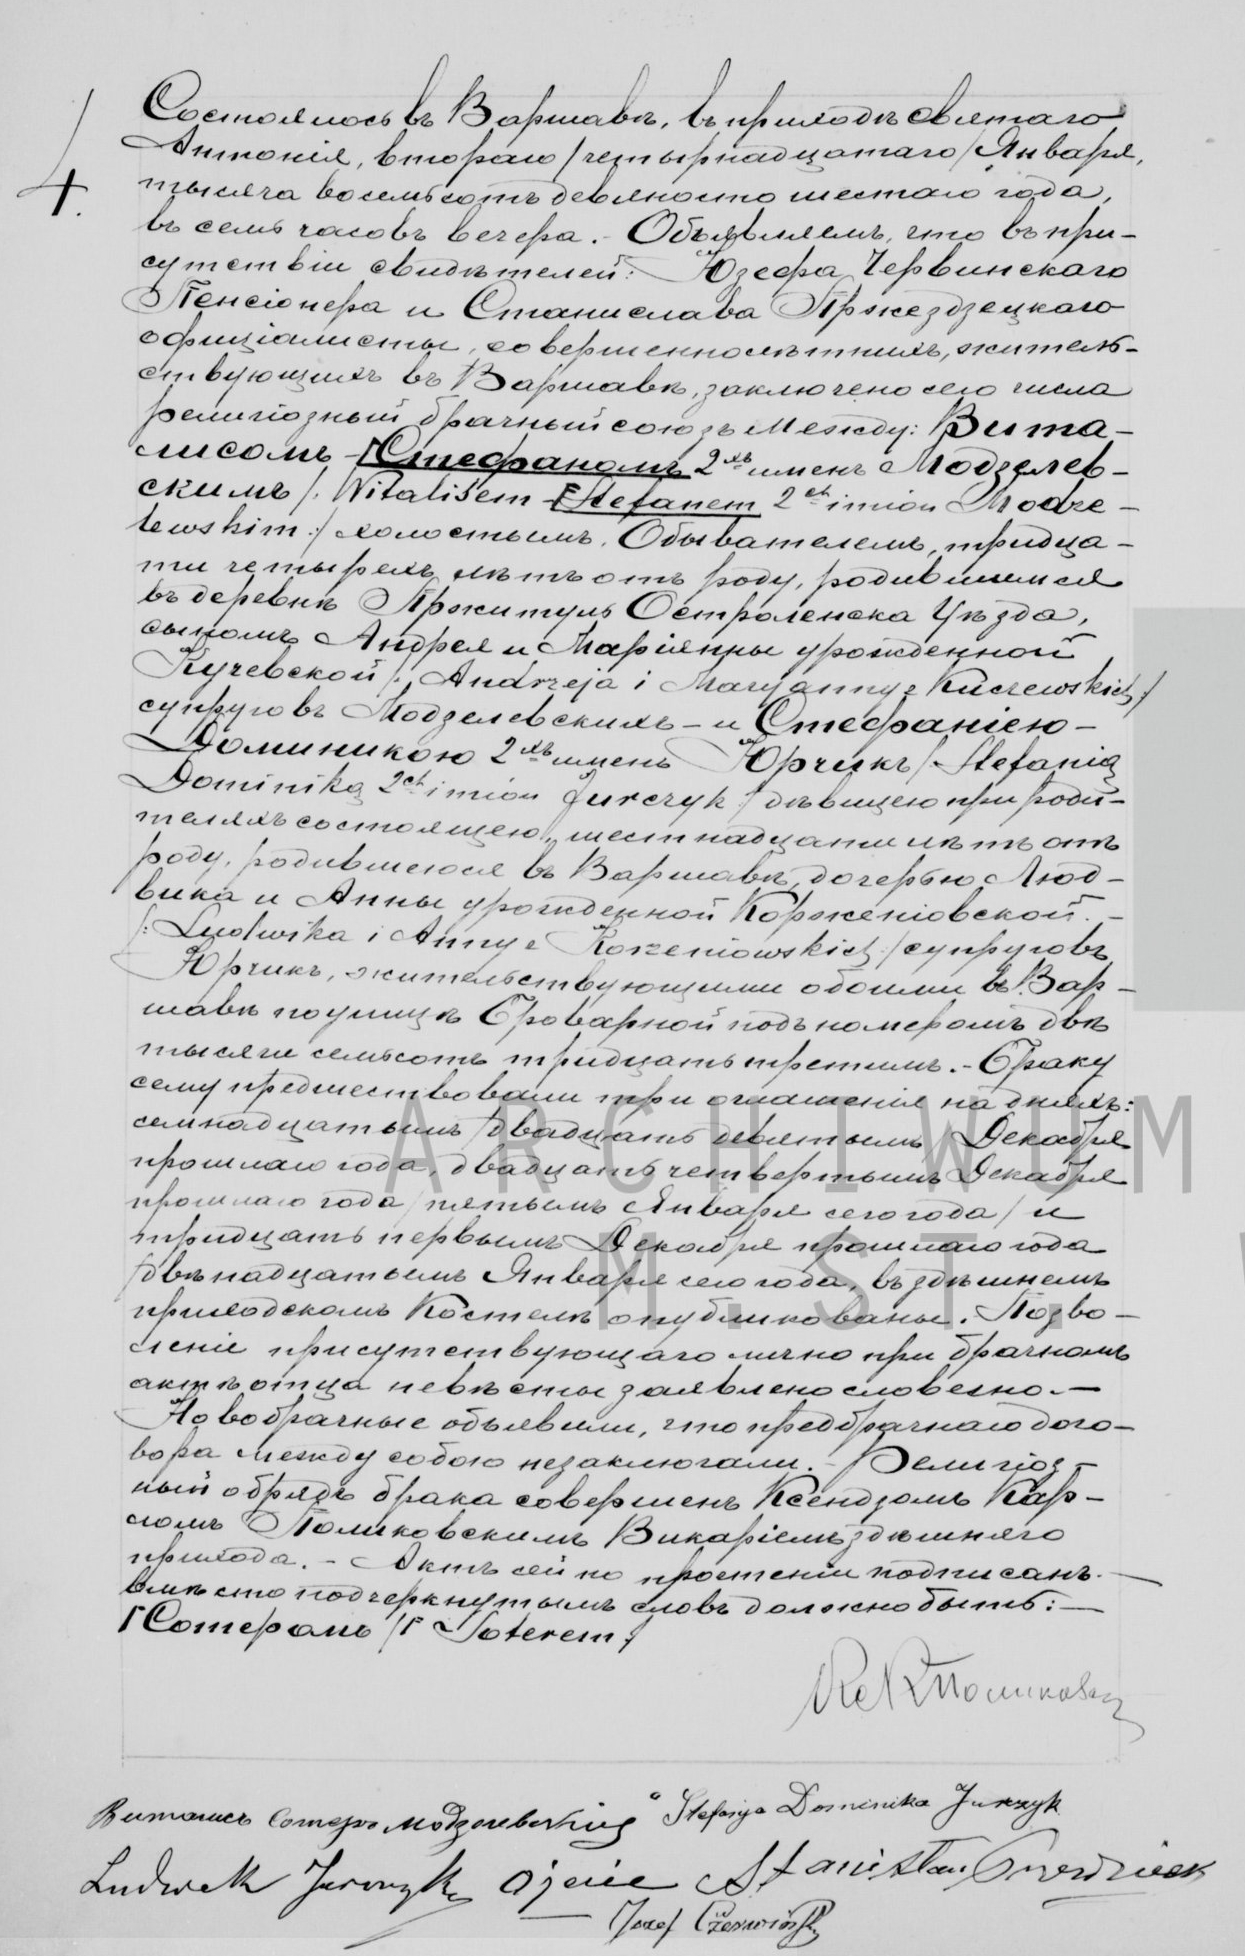 4.
Состоялось въ Варшавѣ, въ приходѣ Святаго
Антонія, втораго /четырнадцатаго/ Января,
тысяча восемьсотъ девяносто шестаго года,
въ семь часовъ вечера. - Объявляемъ, что въ при-
сутствіи свидѣтелей: Юзефа Червинскаго
Пенсіонера и Станислава Пржездзецкаго
официалисты, совершеннолѣтнихъ, житель-
ствующихъ въ Варшавѣ, заключено сего числа
религіозный брачный союзъ между: Вита-
лисомъ-Стефаномъ 2хъ именъ Модзелев-
скимъ /: Witalisem-Stefanem 2ch imion Modze-
lewskim :/ холостымъ, Обывателемъ, тридца-
ти четырехъ лѣтъ отъ роду, родившимся
въ деревнѣ Пржитулъ Остроленска Уѣзда,
сыномъ Андрея и Маріянны урожденной
Кучевской /: Andrzeja i Maryanny z Kuczewskich :/
супруговъ Модзелевскихъ - и Стефаніею-
Доминикою 2хъ именъ Юрчикъ /: Stefanią
Dominiką 2ch imion Jurczyk :/ дѣвицею при роди-
теляхъ состоящею, шестнадцати лѣтъ отъ
роду, родившеюся въ Варшавѣ, дочерью Люд-
вика и Анны урожденной Корженіовской. -
/: Ludwika i Anny z Korzeniowskich :/ супруговъ
Юрчикъ, жительствующими обоими въ Вар-
шавѣ по улицѣ Броварной подъ номеромъ двѣ
тысячи семьсотъ тридцать третьимъ. - Браку
сему предшествовали три оглашенія на дняхъ:
семнадцатымъ /двадцать девятымъ Декабря
прошлаго года, двадцать четвертымъ Декабря
прошлаго года /пятымъ Января сего года/ и
тридцать первымъ Декабря прошлаго года
/двѣнадцатымъ Января сего года, въ здѣшнемъ
приходскомъ Костелѣ опубликованы. Позво-
леніе присутствующаго лично при брачномъ
актѣ отца невѣсты заявлено словесно. -
Новобрачные объявили, что предбрачнаго дого-
вора между собою незаключали. - Религіоз-
ный обрядъ брака совершенъ Ксендзомъ Кар-
ломъ Поликовскимъ Викаріемъ здѣшняго
прихода. - Актъ сей по прочтеніи подписанъ. -
вмѣсто подчеркнутымъ словъ должно быть: -
Сотеромъ /: Soterem :/
Виталисъ Сотеръ Модзелевскій Stefanja Dominika Jurczyk
Ludwik Jurczyk ojciec Stanisław Przezdziecki
Józef Czerwiński
ARCHIWUM
M. ST.